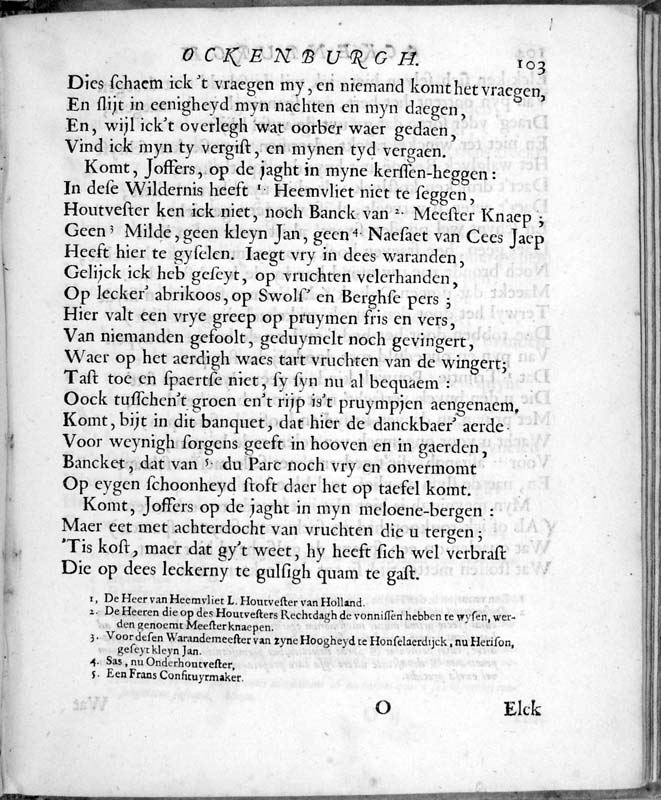 OCKENBURGH. 103
Dies ſchaem ick 't vraegen my, en niemand komt het vraegen,
En ſlijt in eenigheyd myn nachten en myn daegen,
En, wijl ick't overlegh wat oorber waer gedaen,
Vind ick myn ty vergiſt, en mynen tyd vergaen.
Komt, Joffers, op de jaght in myne kerſſen-heggen:
In deſe Wildernis heeft 1. Heemvliet niet te ſeggen,
Houtveſter ken ick niet, noch Banck van 2. Meeſter Knaep;
Geen 3 Milde, geen kleyn Jan, geen 4. Naeſaet van Cees Jaep
Heeft hier te gyſelen. Iaegt vry in dees waranden,
Gelijck ick heb geſeyt, op vruchten velerhanden,
Op lecker' abrikoos, op Swolſ' en Berghſe pers;
Hier valt een vrye greep op pruymen fris en vers,
Van niemanden geſoolt, geduymelt noch gevingert,
Waer op het aerdigh waes tart vruchten van de wingert;
Taſt toe en ſpaertſe niet, ſy ſyn nu al bequaem:
Oock tuſſchen't groen en't rijp is't pruympjen aengenaem.
Komt, bijt in dit banquet, dat hier de danckbaer' aerde
Voor weynigh ſorgens geeft in hooven en in gaerden,
Bancket, dat van 5. du Parc noch vry en onvermomt
Op eygen ſchoonheyd ſtoft daer het op taefel komt.
Komt, Joffers op de jaght in myn meloene-bergen:
Maer eet met achterdocht van vruchten die u tergen;
'Tis koſt, maer dat gy't weet, hy heeft ſich wel verbraſt
Die op dees leckerny te gulſigh quam te gaſt.
1, De Heer van Heemvliet L. Houtveſter van Holland.
2. De Heeren die op des Houtveſters Rechtdagh de vonniſſen hebben te wyſen, wer-
den genoemt Meeſter knaepen.
3. Voor deſen Warandemeeſter van zyne Hoogheyd te Honſelaerdijck, nu Heriſon,
geſeyt kleyn Jan.
4. Sas, nu Onderhoutveſter,
5. Een Frans Confituyrmaker.
O Elck